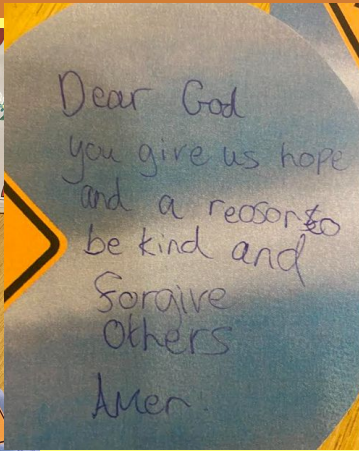 Dear God
you give us hope
and a reason to
be kind and
forgive
Others
Amen.